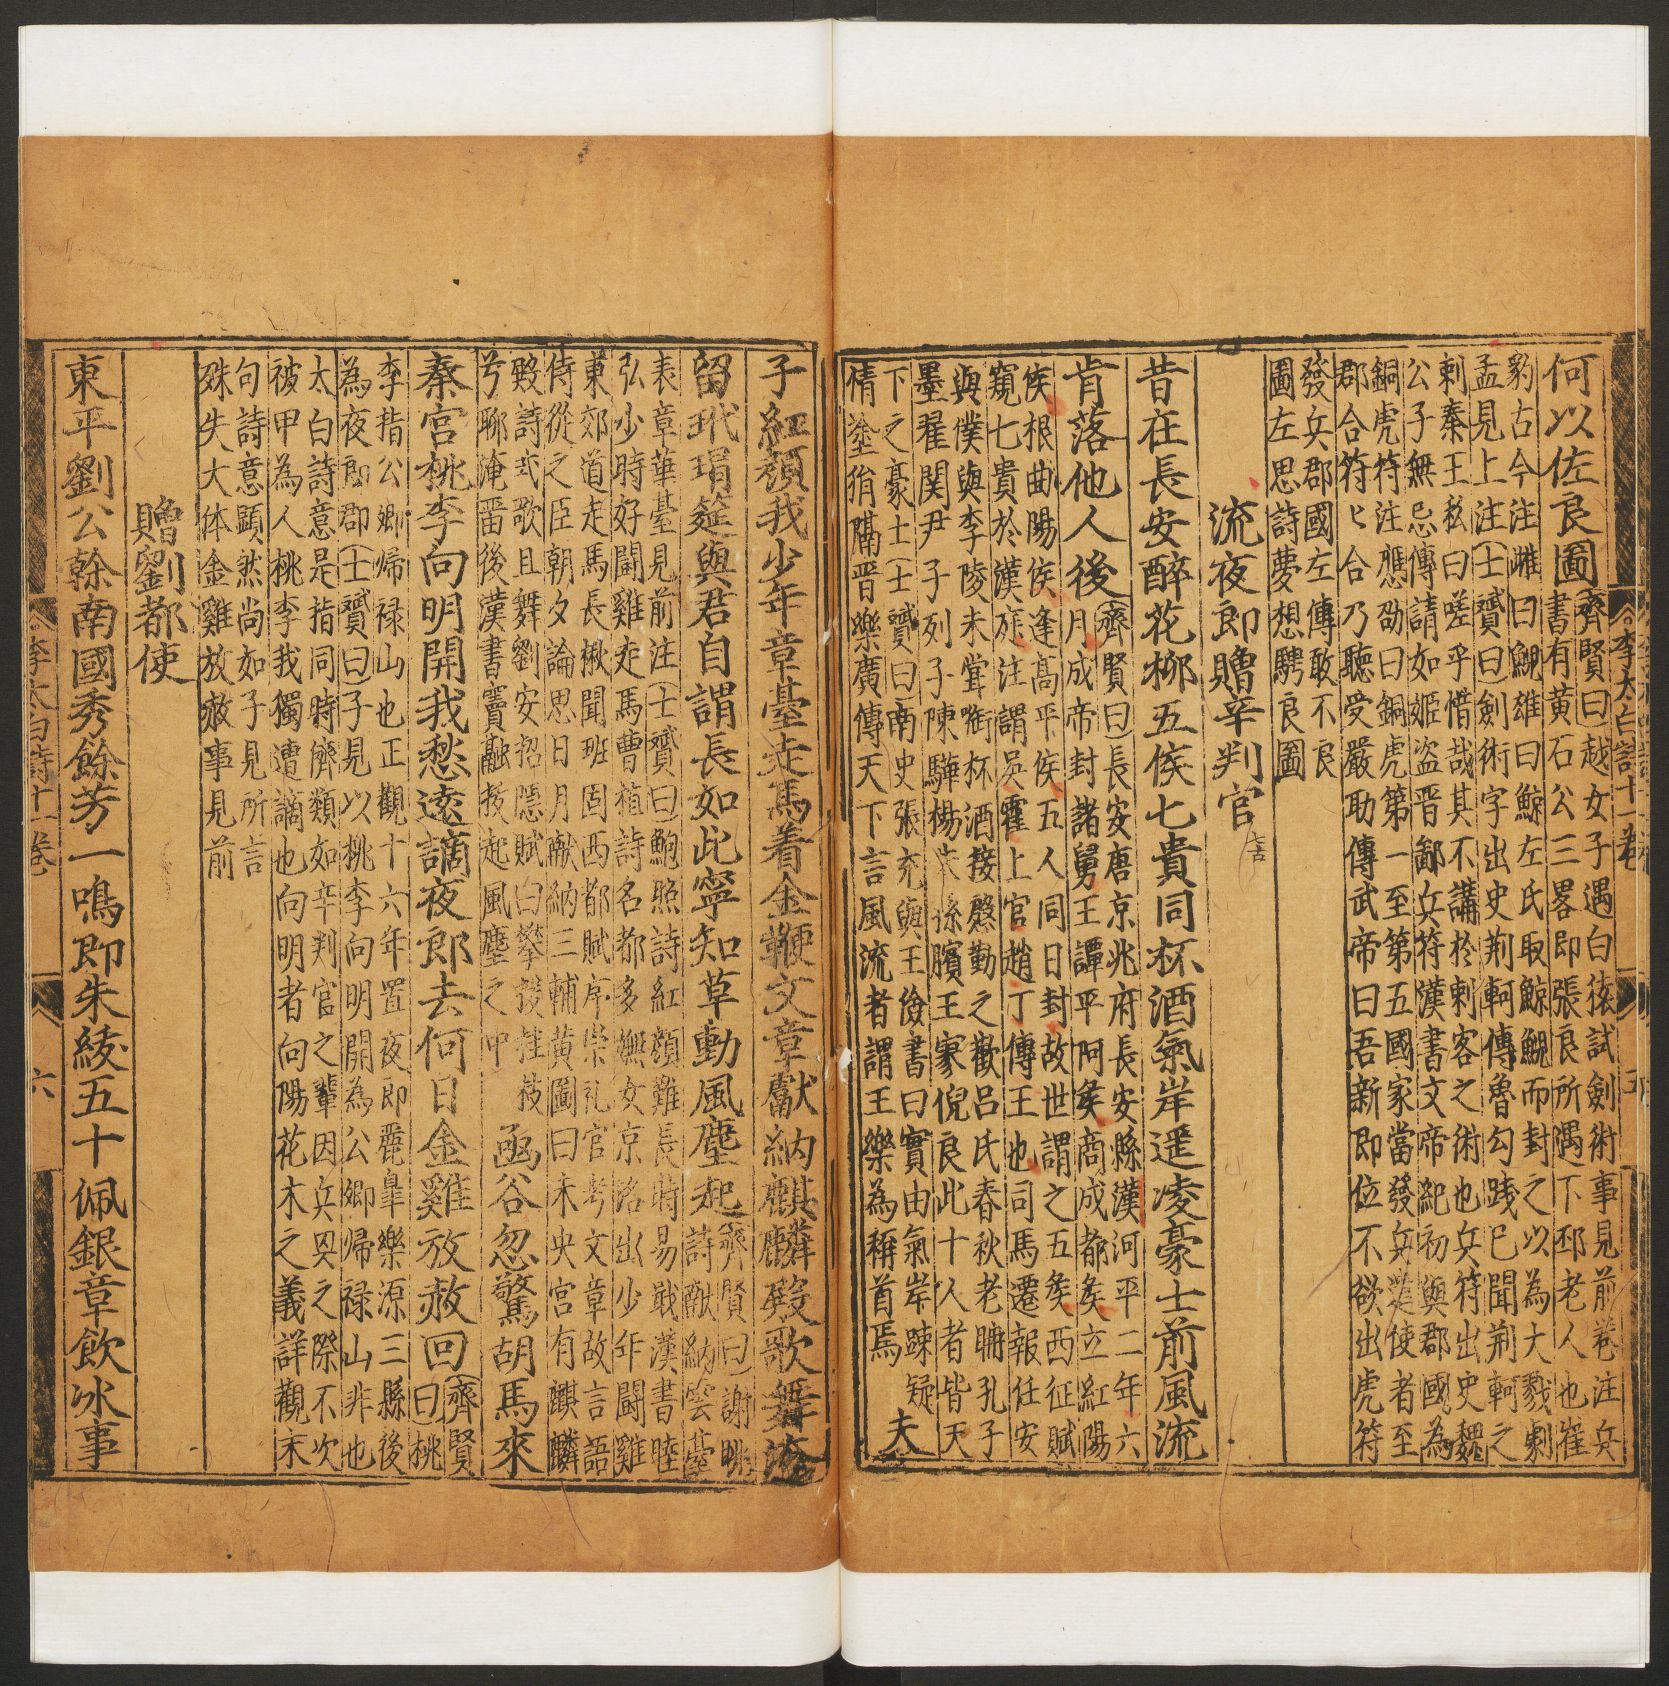 何以佐良圖
齊賢曰越女子遇白猿試劍術事見前卷注兵
書有黃石公三畧即張良所遇下邳老人也崔
豹古今注雌曰鯢雄曰鯨左氏取鯨鯢而封之以為大戮劇
孟見上注士贇曰劍術字出史荆軻傳魯勾踐已聞荆軻之
刺秦王私曰嗟乎惜哉其不講於刺客之術也兵符出史魏
公子無忌傳請如姬盜晋鄙兵符漢書文帝紀初與郡國為
銅虎符注應劭曰銅虎第一至第五國家當發兵遣使者至
郡合符〻合乃聽受嚴助傳武帝曰吾新即位不欲出虎符
發兵郡國左傳敢不良
圖左思詩夢想騁良圖
流夜郎贈辛判官
昔在長安醉花柳五侯七貴同杯酒氣岸遥凌豪士前風流
肯落他人後
齊賢曰長安唐京兆府長安縣漢河平二年六
月成帝封諸舅王譚平阿矦商成都矦立紅陽
侯根曲陽侯逢高平侯五人同日封故世謂之五矦西征賦
窺七貴於漢庭注謂吳霍上官趙丁傳王也司馬遷報任安
與僕與李陵未甞啣杯酒接慇勤之歡吕氏春秋老聃孔子
墨翟関尹子列子陳駢楊朱孫臏王家倪良此十人者皆天
下之豪士士贇曰南史張充與王儉書曰實由氣岸踈疑
情塗狷隔晋樂廣傳天下言風流者謂王樂為稱首焉
夫
子紅顔我少年章臺走馬着金鞭文章獻納麒麟殿歌舞淹
留玳瑁筵與君自謂長如此寧知草動風塵起
齊賢曰謝眺
詩獻納雲臺
表章華臺見前注士贇曰鮑照詩紅顔難長時易戢漢書睦
弘少時好闘雞走馬曹植詩名都多嫵女京洛出少年闘雞
東郊道走馬長楸間班固西都賦序崇礼官考文章故言語
侍從之臣朝夕論思日月獻納三輔黃圖曰未央宮有麒麟
殿詩式歌且舞劉安招隱賦曰攀援桂枝
兮聊淹畱後漢書竇融拔起風塵之中
函谷忽驚胡馬來
秦宮桃李向明開我愁遠謫夜郎去何日金雞放赦回
齊賢
曰桃
李指公卿帰禄山也正觀十六年置夜郎麗皐樂源三縣後
為夜郎郡士贇曰子見以桃李向明開為公卿帰禄山非也
太白詩意是指同時儕類如辛判官之輩因兵兴之際不次
被甲為人桃李我獨遭謫也向明者向陽花木之義詳觀末
句詩意顕然尚如子見所言
殊失大体金雞放赦事見前
贈劉都使
東平劉公榦南國秀餘芳一鳴即朱綬五十佩銀章飲冰事
李太白詩十一卷
六